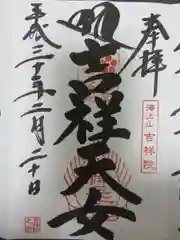 奉拝
海上山
吉祥院
吉祥天女
平成二十三年二月二十日